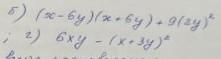 б) (x-6y)(x+6y)+9(2y)²
; г) 6xy - (x+3y)²